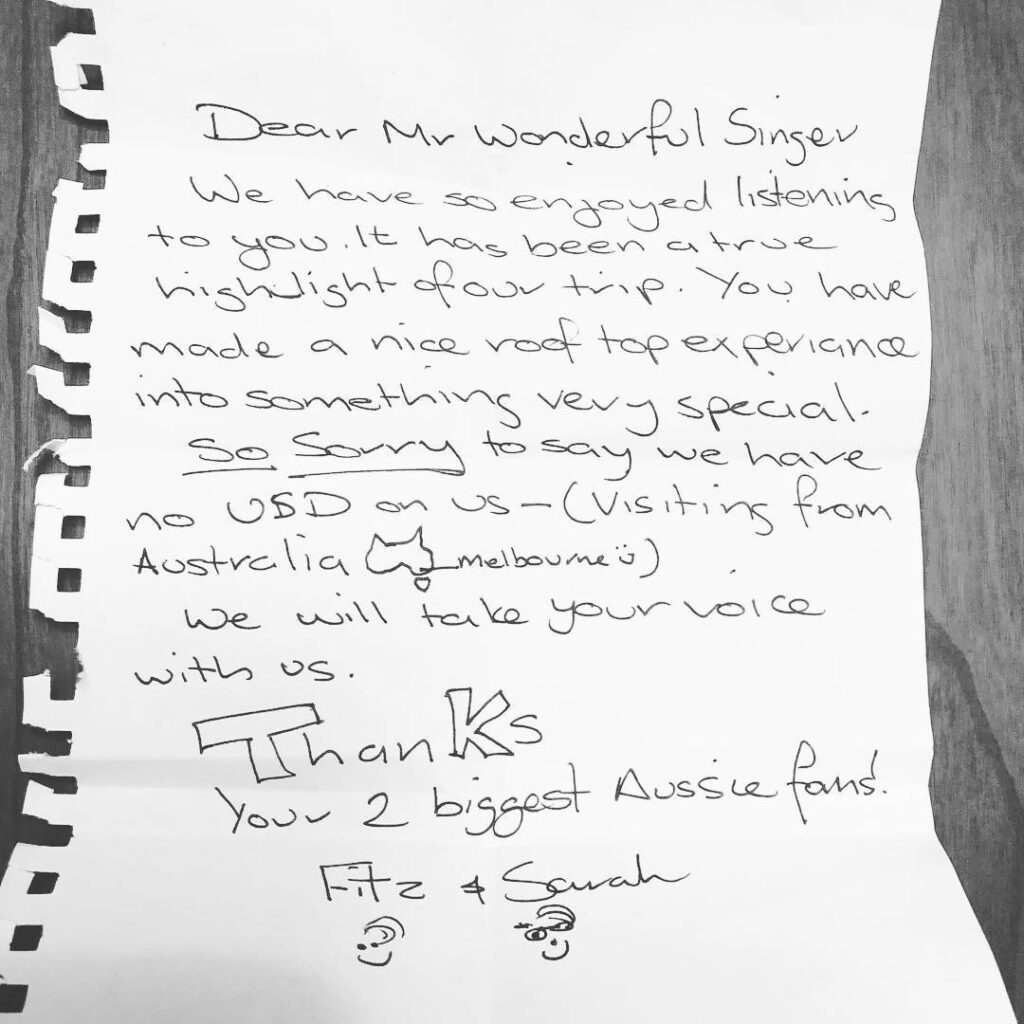 Dear Mr Wonderful Singer
We have so enjoyed listening
to you. It has been a true
highlight of our trip. You have
made a nice roof top experiance
into something very special.
So Sorry to say we have
no USD on us - (Visiting from
Australia melbourne ü)
We will take your voice
with us.
ThanKs
Your 2 biggest Aussie fans!
Fitz & Sarah